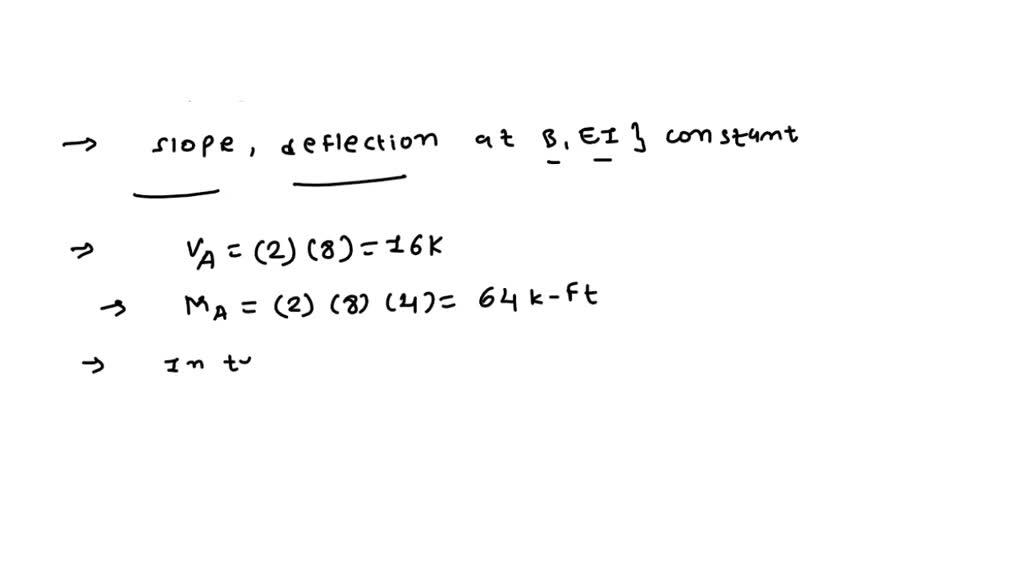 → slope, deflection at B, EI } constant
⇒ VA = (2) (8) = 16K
→ MA = (2) (8) (4) = 64 k-ft
→ In